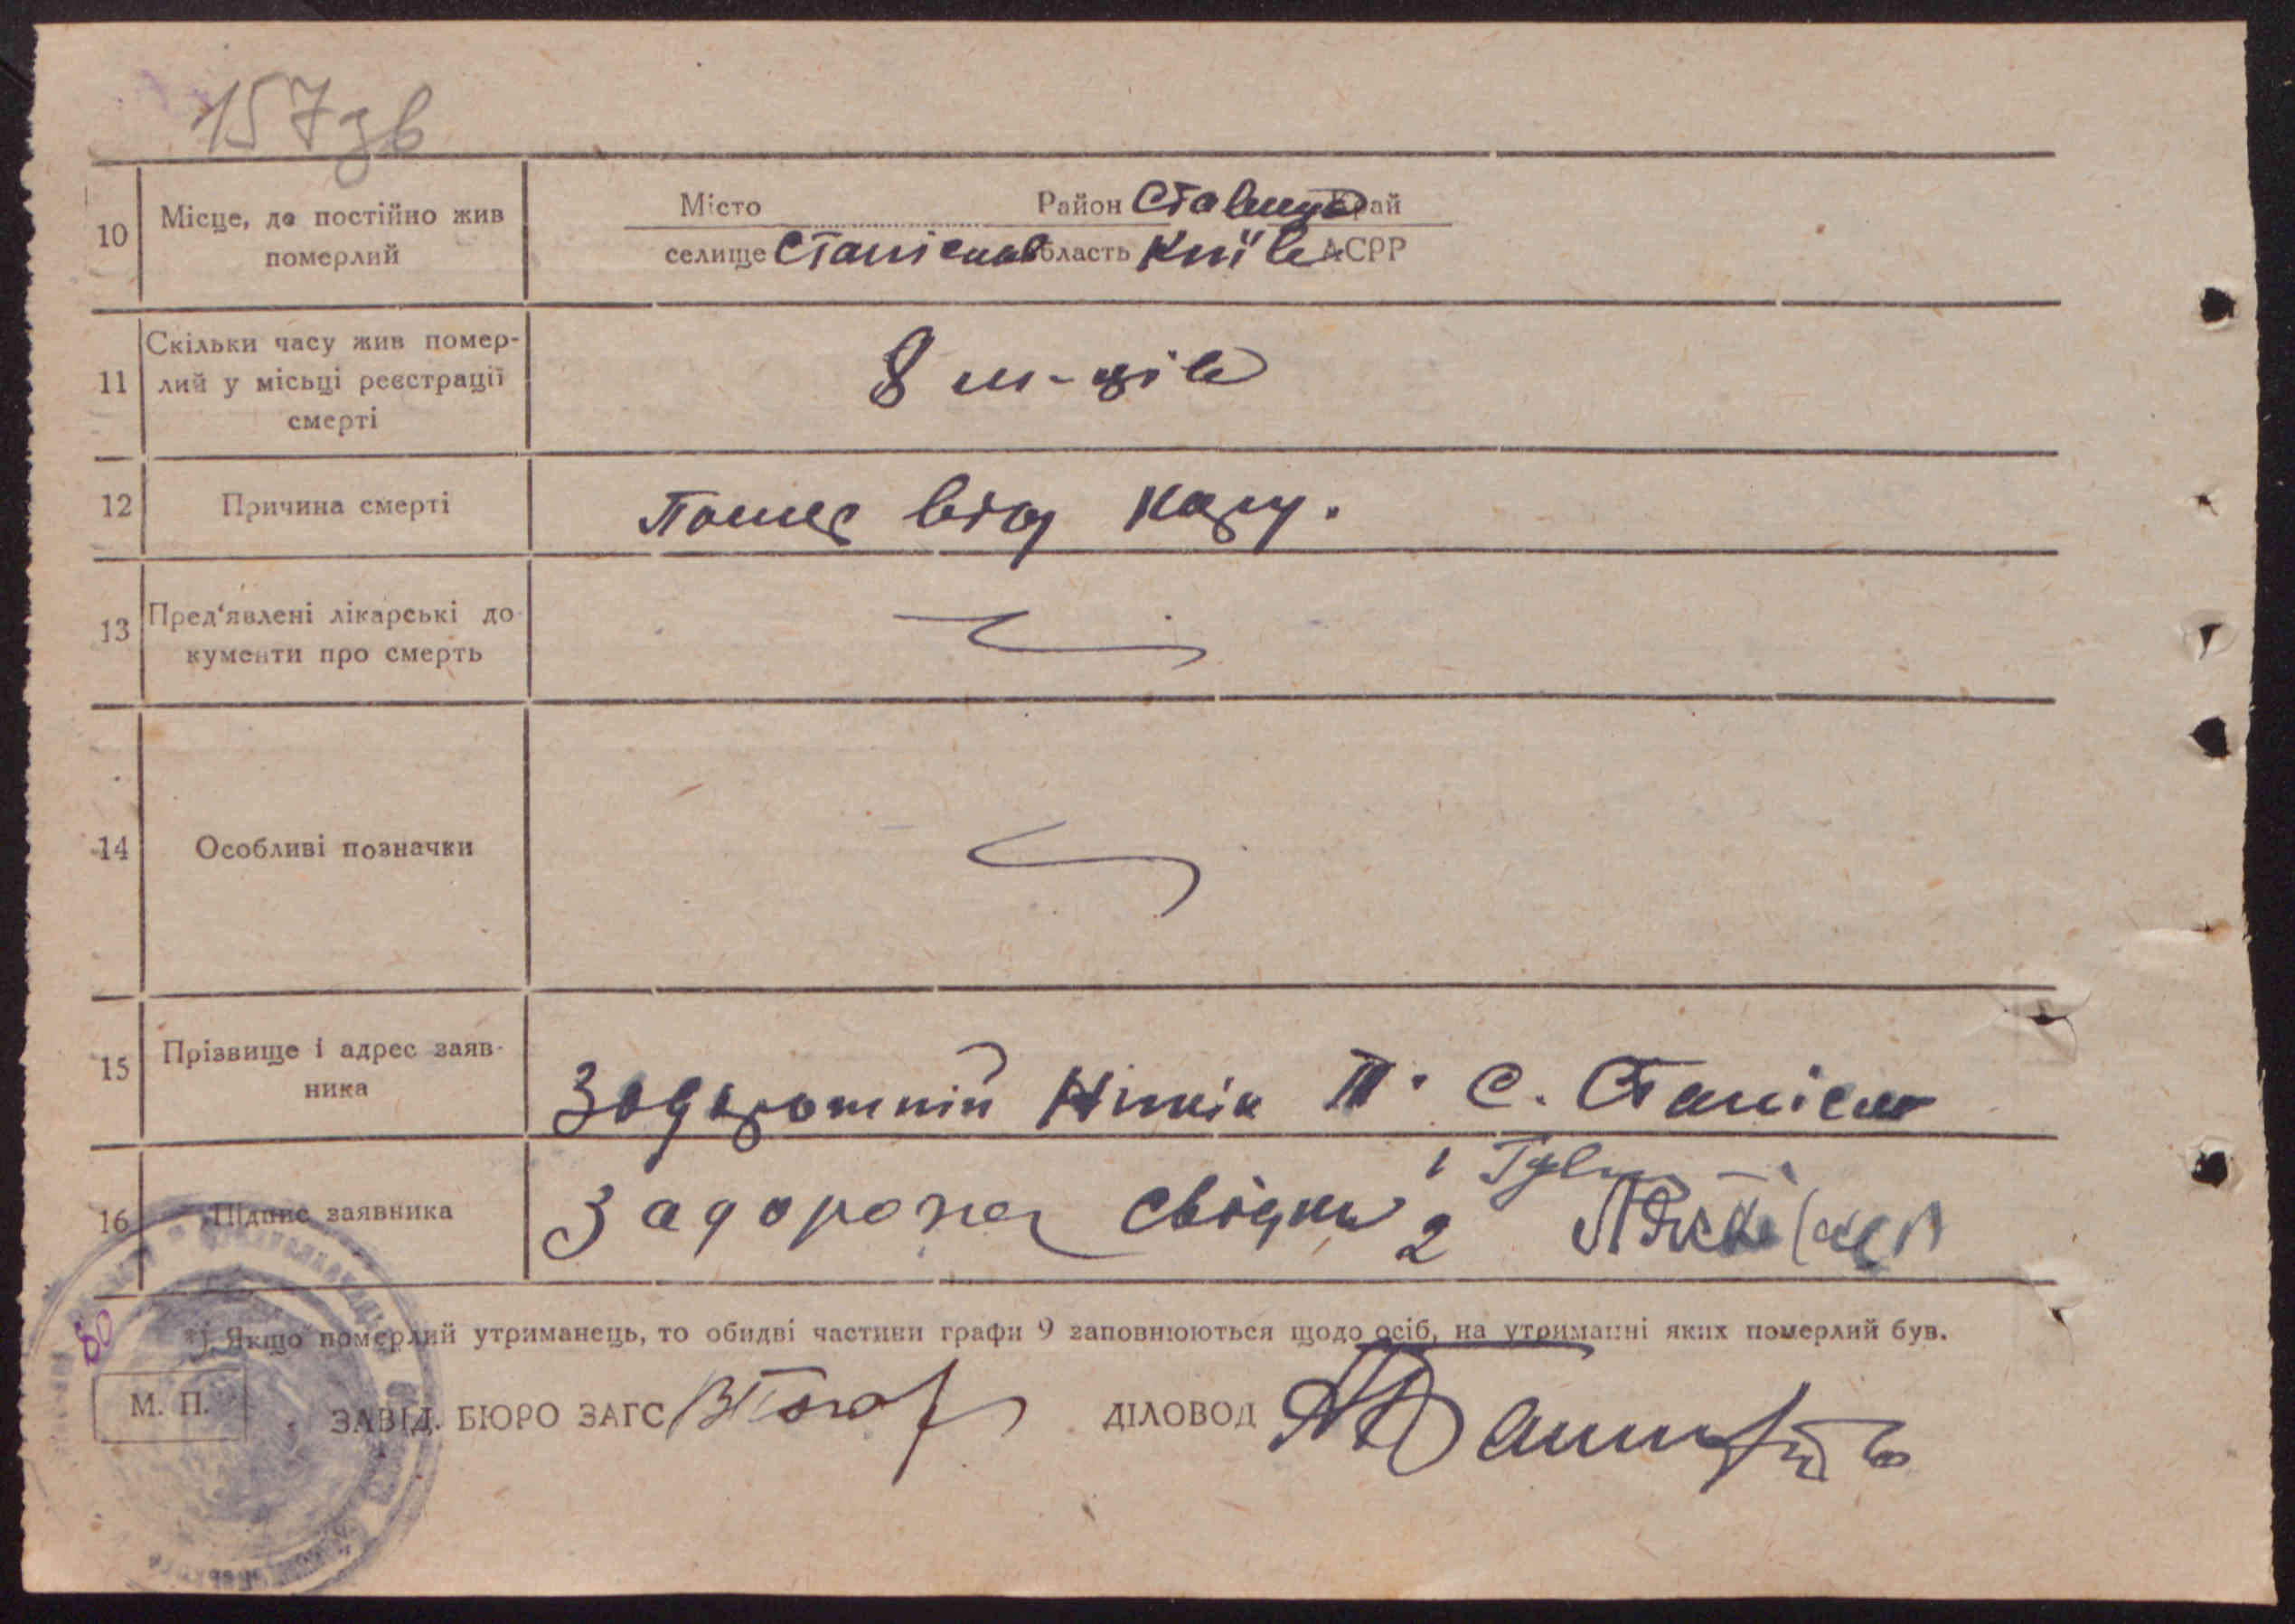 157 зв
10 Місце, де постійно жив померлий
Місто Район Ставищ Край
селище Станіслав область Київ АСРР
11 Скільки часу жив помер-
лий у місьці реєстрації
смерті
8 м-ців
12 Причина смерті
Помер від кору.
13 Пред'явлені лікарські до-
кументи про смерть
14 Особливі позначки
15 Прізвище і адрес заяв-
ника
Задорожній С. Станісл
16 Підпис заявника
Задорожн свідки 1
2
80
*) Якщо померлий утриманець, то обидві частини графи 9 заповнюються щодо осіб, на утриманні яких померлий був.
М. П.
ЗАВІД. БЮРО ЗАГС ДІЛОВОД